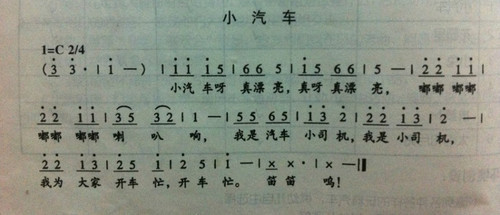 小 汽 车
1=C 2/4
( 3̇ 3̇ · | 1̇ — ) | 1̇ 1̇ 1̇ 5 | 6 6 5 | 1̇ 5 6 6 | 5 — | 2̇ 2̇ 1̇ 1̇ |
小汽 车呀 真漂 亮,真呀 真漂 亮, 嘟嘟 嘟嘟
2̇ 2̇ 1̇ 1̇ | 3 5 3 2 | 1 — | 5 5 6 5 | 1̇ 1̇ 3̇ 2̇ | 2̇ 2̇ 1̇ 3̇ | 2̇ — |
嘟嘟 嘟嘟 喇 叭 响, 我是 汽车 小司 机,我是 小司 机,
2̇ 2̇ 1̇ 3̇ | 5 5 1̇ | 5 5 1̇ | x x · | x — ||
我为 大家 开车 忙,开车 忙。 笛笛 呜!